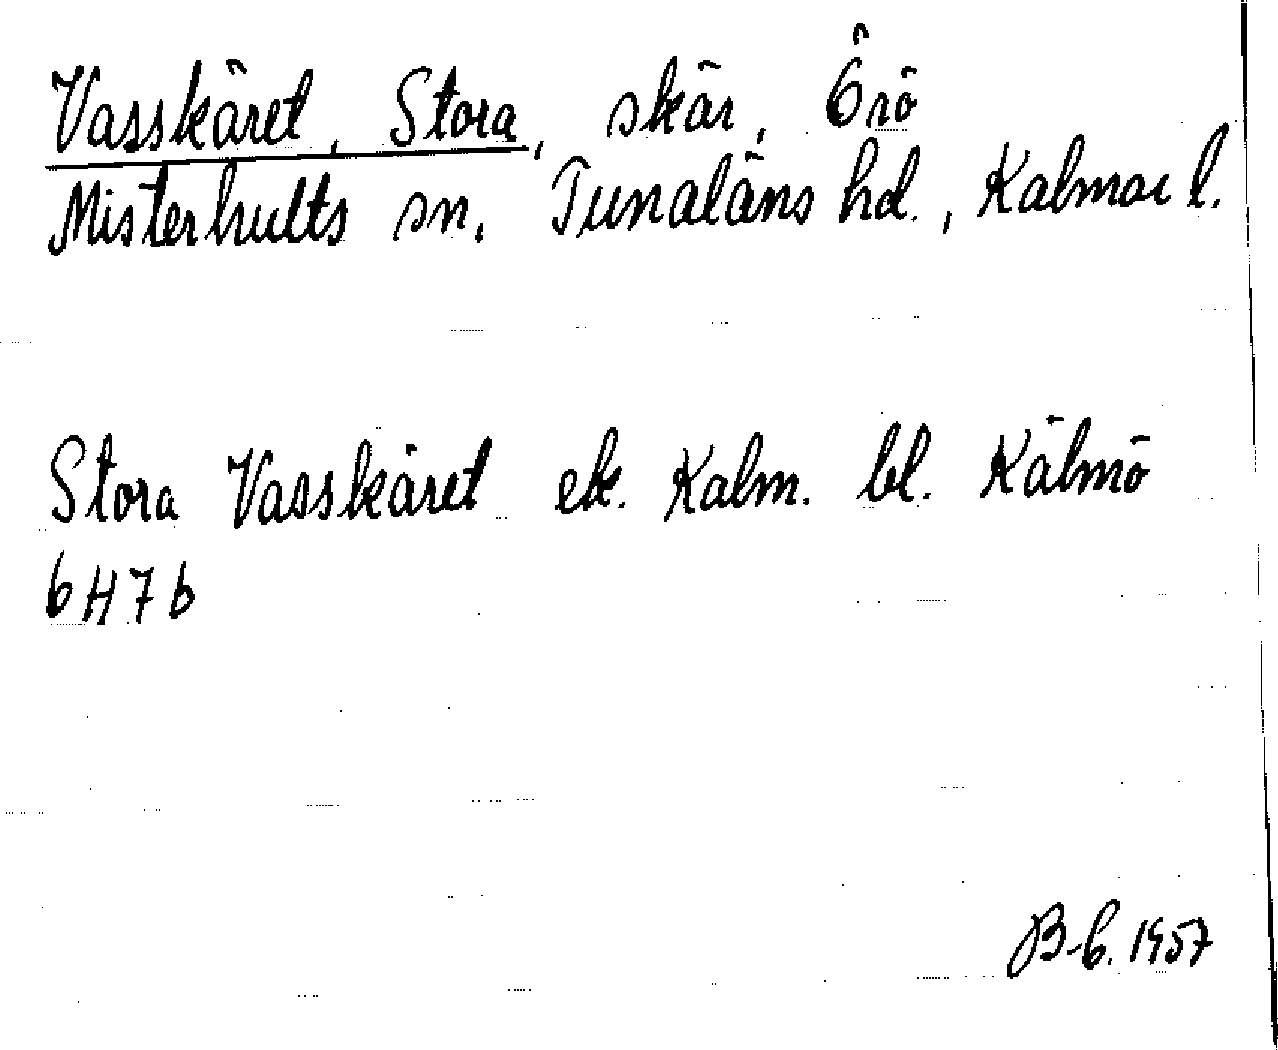 Vasskäret, Stora, skär, Örö
Misterhults sn. Tunaläns hd., Kalmar l.
Stora Vasskäret ek. Kalm. bl. Kälmö
6H7b
B-6. 1957